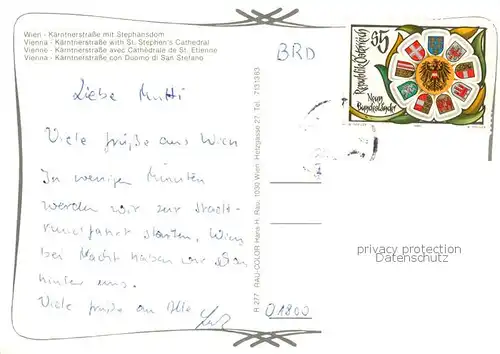 Wien - Kärntnerstraße mit Stephansdom
Vienna - Kärntnerstraße with St. Stephen's Cathedral
Vienne - Kärntnerstraße avec Cathédrale de St. Etienne
Vienna - Kärntnerstraße con Duomo di San Stefano
BRD
Republik Österreich
S5
Neun Bundesländer
Liebe Mutti
Viele Grüße aus Wien
In wenigen Minuten
werden wir zur Stadt-
rundfahrt starten, Wien
bei Nacht haben wir schon
hinter uns.
Viele Grüße an Alle
R 277 RAU-COLOR Hans H. Rau, 1030 Wien, Hetzgasse 27, Tel. 7131383
privacy protection
Datenschutz
01800